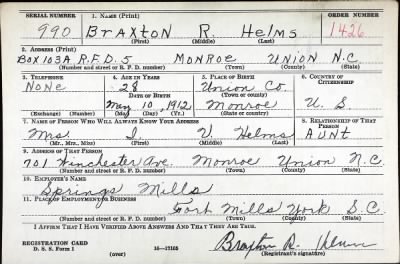 SERIAL NUMBER 1. NAME (Print) ORDER NUMBER
990 BRAXTON R. HELMS 1426
(First) (Middle) (Last)
2. ADDRESS (Print)
BOX 103A R.F.D. 5 MONROE UNION N.C
(Number and street or R. F. D. number) (Town) (County) (State)
3. TELEPHONE 4. AGE IN YEARS 5. PLACE OF BIRTH 6. COUNTRY OF CITIZENSHIP
None 28 Union Co.
DATE OF BIRTH (Town or county)
May 10, 1912 Monroe U. S
(Exchange) (Number) (Mo.) (Day) (Yr.) (State or country)
7. NAME OF PERSON WHO WILL ALWAYS KNOW YOUR ADDRESS 8. RELATIONSHIP OF THAT PERSON
Mrs I. V. Helms AUNT
(Mr., Mrs., Miss) (First) (Middle) (Last)
9. ADDRESS OF THAT PERSON
701 Winchester Ave. Monroe Union N.C.
(Number and street or R. F. D. number) (Town) (County) (State)
10. EMPLOYER'S NAME
Springs Mills
11. PLACE OF EMPLOYMENT OR BUSINESS
Fort Mills York S.C
(Number and street or R. F. D. number) (Town) (County) (State)
I AFFIRM THAT I HAVE VERIFIED ABOVE ANSWERS AND THAT THEY ARE TRUE.
REGISTRATION CARD
D. S. S. Form 1 (over) 16—17105 Braxton R. Helms
(Registrant's signature)